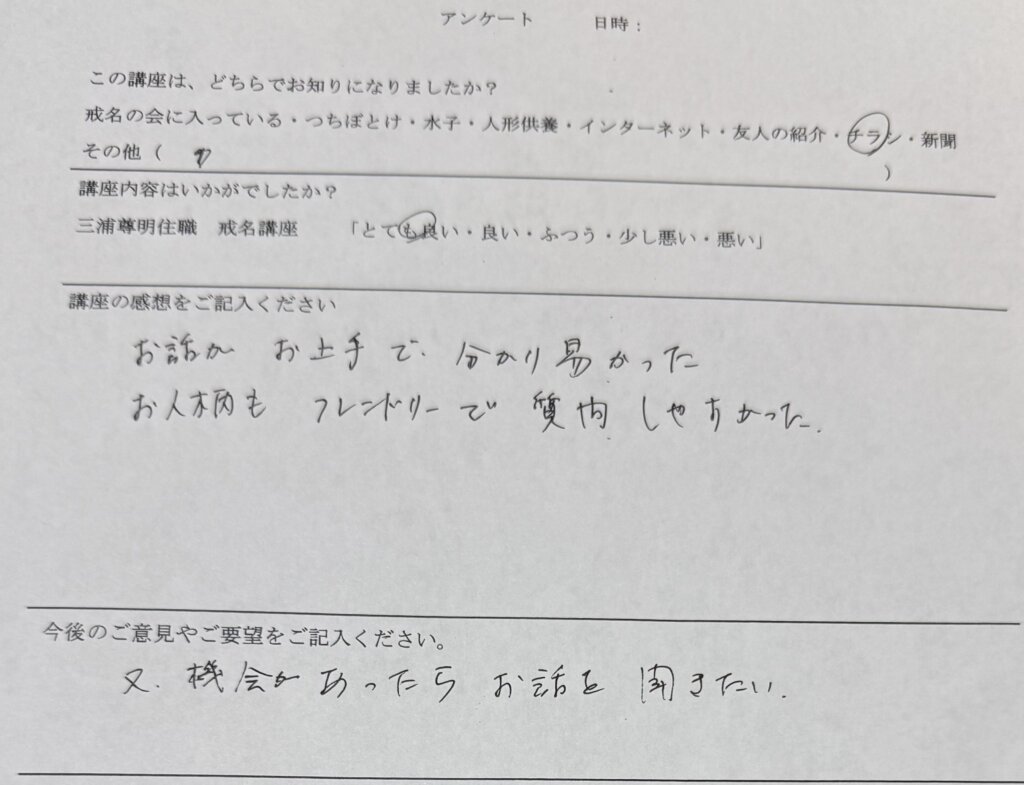 アンケート　日時：
この講座は、どちらでお知りになりましたか？
戒名の会に入っている・つちぼとけ・水子・人形供養・インターネット・友人の紹介・チラシ・新聞
その他（　）
講座内容はいかがでしたか？
三浦尊明住職　戒名講座　「とても良い・良い・ふつう・少し悪い・悪い」
講座の感想をご記入ください
お話が　お上手で、分かり易かった
お人柄も　フレンドリーで　質問しやすかった.
今後のご意見やご要望をご記入ください。
又、機会があったら　お話を　聞きたい.